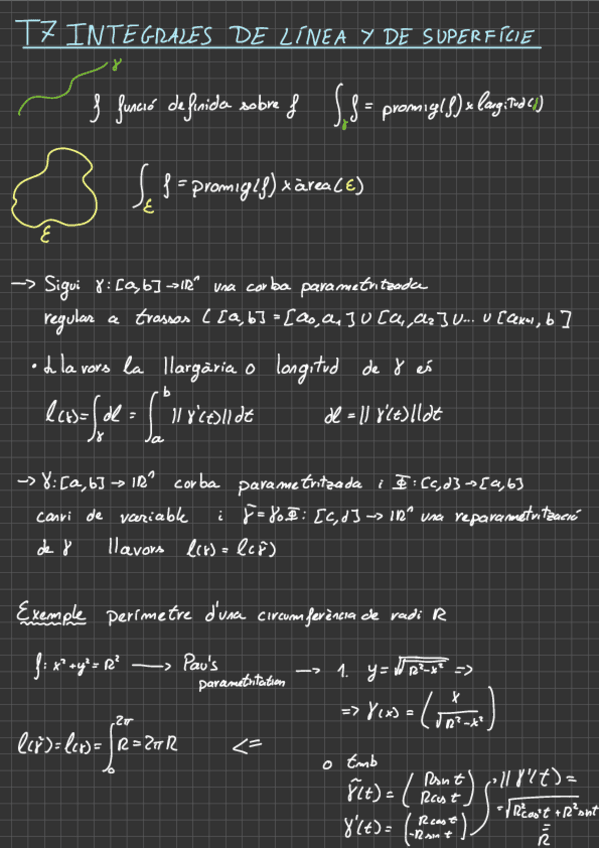 T7 INTEGRALES DE LÍNEA Y DE SUPERFÍCIE
γ
f funció definida sobre f ∫_γ f = promig(f) × longitud(γ)
∫_ε f = promig(f) × àrea(ε)
ε
→ Sigui γ: [a,b] → ℝⁿ una corba parametritzada
regular a trossos ( [a,b] = [a₀,a₁] ∪ [a₁,a₂] ∪... ∪ [aₖ₊₁, b]
• Llavors la llargària o longitud de γ és
l(γ) = ∫_γ dl = ∫_a^b ||γ'(t)|| dt dl = ||γ'(t)|| dt
→ γ: [a,b] → ℝⁿ corba parametritzada i Φ: [c,d] → [a,b]
canvi de variable i γ̃ = γ∘Φ: [c,d] → ℝⁿ una reparametrització
de γ llavors l(γ) = l(γ̃)
Exemple perímetre d'una circumferència de radi R
f: x² + y² = R² → Pau's parametritation → 1. y = √(R²-x²) =>
=> γ(x) = (x / √(R²-x²))
l(γ̃) = l(γ) = ∫_0^{2π} R = 2πR <=
o tmb
γ̃(t) = (R sin t / R cos t) ||γ'(t) =
γ'(t) = (R cos t / -R sin t) = √(R² cos² t + R² sin t
= R